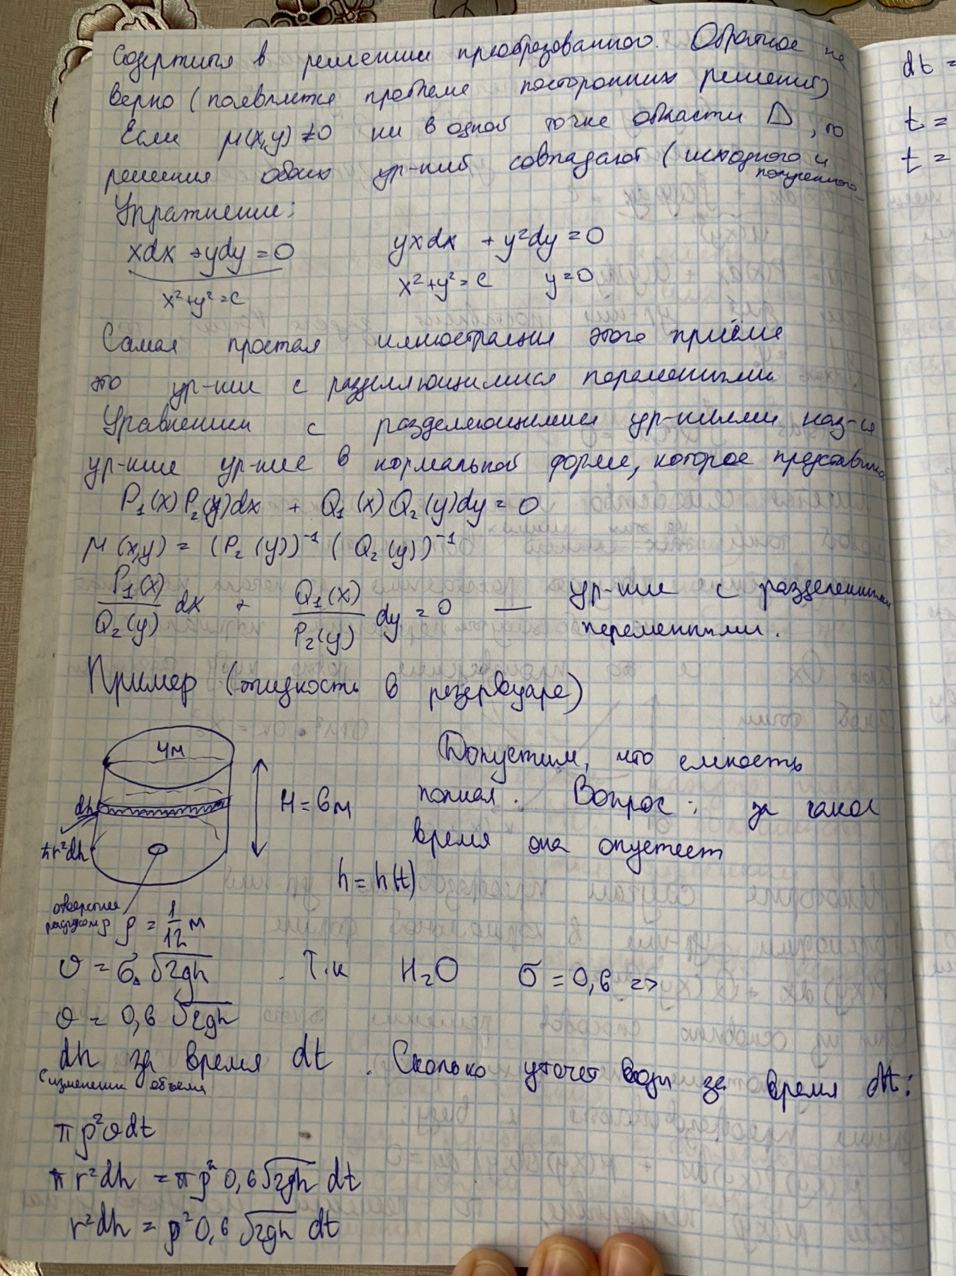 содержится в решении преобразованного. Обратное не
верно (появляется проблема посторонних решений)
Если μ(x,y) ≠ 0 ни в одной точке области D, то
решения обоих ур-ний совпадают (исходного и
полученного
Упражнение:
xdx + ydy = 0 yxdx + y²dy = 0
x² + y² = c x² + y² = c y = 0
Самая простая иллюстрация этого приёма
это ур-ние с разделяющимися переменными
Уравнением с разделяющимися ур-ниями наз-ся
ур-ние ур-ние в нормальной форме, которое представимо
P₁(x)P₂(y)dx + Q₁(x)Q₂(y)dy = 0
μ(x,y) = (P₂(y))⁻¹ (Q₂(y))⁻¹
P₁(x)/Q₂(y) dx + Q₁(x)/P₂(y) dy = 0 — ур-ние с разделенными
переменными.
Пример (жидкость в резервуаре)
4м
dh
πr²dh
H = 6м
Допустим, что емкость
полная. Вопрос: за какое
время она опустеет
h = h(t)
отверстие
радиусом ρ ρ = 1/12 м
υ = σ √2gh . Т.к H₂O σ = 0,6 =>
υ = 0,6 √2gh
dh за время dt. Сколько утечет воды за время dt:
изменении объема
πρ²υdt
πr²dh = πρ² 0,6 √2gh dt
r²dh = ρ² 0,6 √2gh dt
dt =
t =
t =